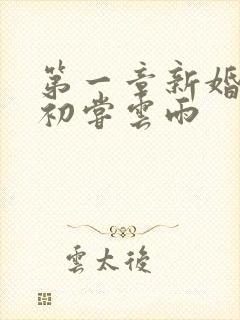 第一章新婚
初嘗雲雨
雲太後